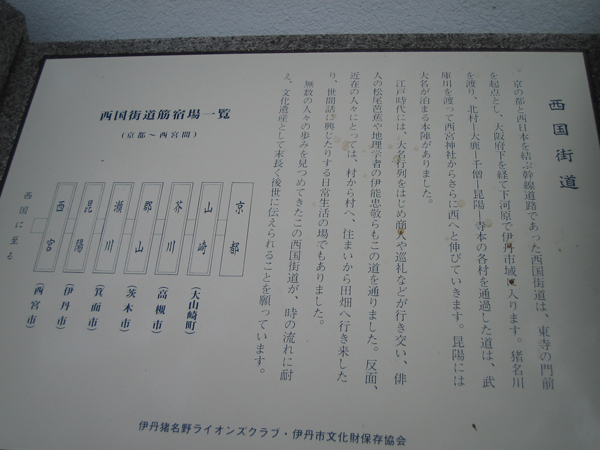 西国街道
京の都と西日本を結ぶ幹線道路であった西国街道は、東寺の門前
を起点とし、大阪府下を経て下河原で伊丹市域に入ります。猪名川
を渡り、北村―大鹿―千僧―昆陽―寺本の各村を通過した道は、武
庫川を渡って西宮神社からさらに西へと伸びていきます。昆陽には
大名が泊まる本陣がありました。
江戸時代には、大名行列をはじめ商人や巡礼などが行き交い、俳
人の松尾芭蕉や地理学者の伊能忠敬らもこの道を通りました。反面、
近在の人々にとっては、村から村へ、住まいから田畑へ行き来した
り、世間話に興じたりする日常生活の場でもありました。
無数の人々の歩みを見つめてきたこの西国街道が、時の流れに耐
え、文化遺産として末長く後世に伝えられることを願っています。
西国街道筋宿場一覧
(京都〜西宮間)
京都
山崎 (大山崎町)
芥川 (高槻市)
郡山 (茨木市)
瀬川 (箕面市)
昆陽 (伊丹市)
西宮 (西宮市)
西国に至る
伊丹猪名野ライオンズクラブ・伊丹市文化財保存協会